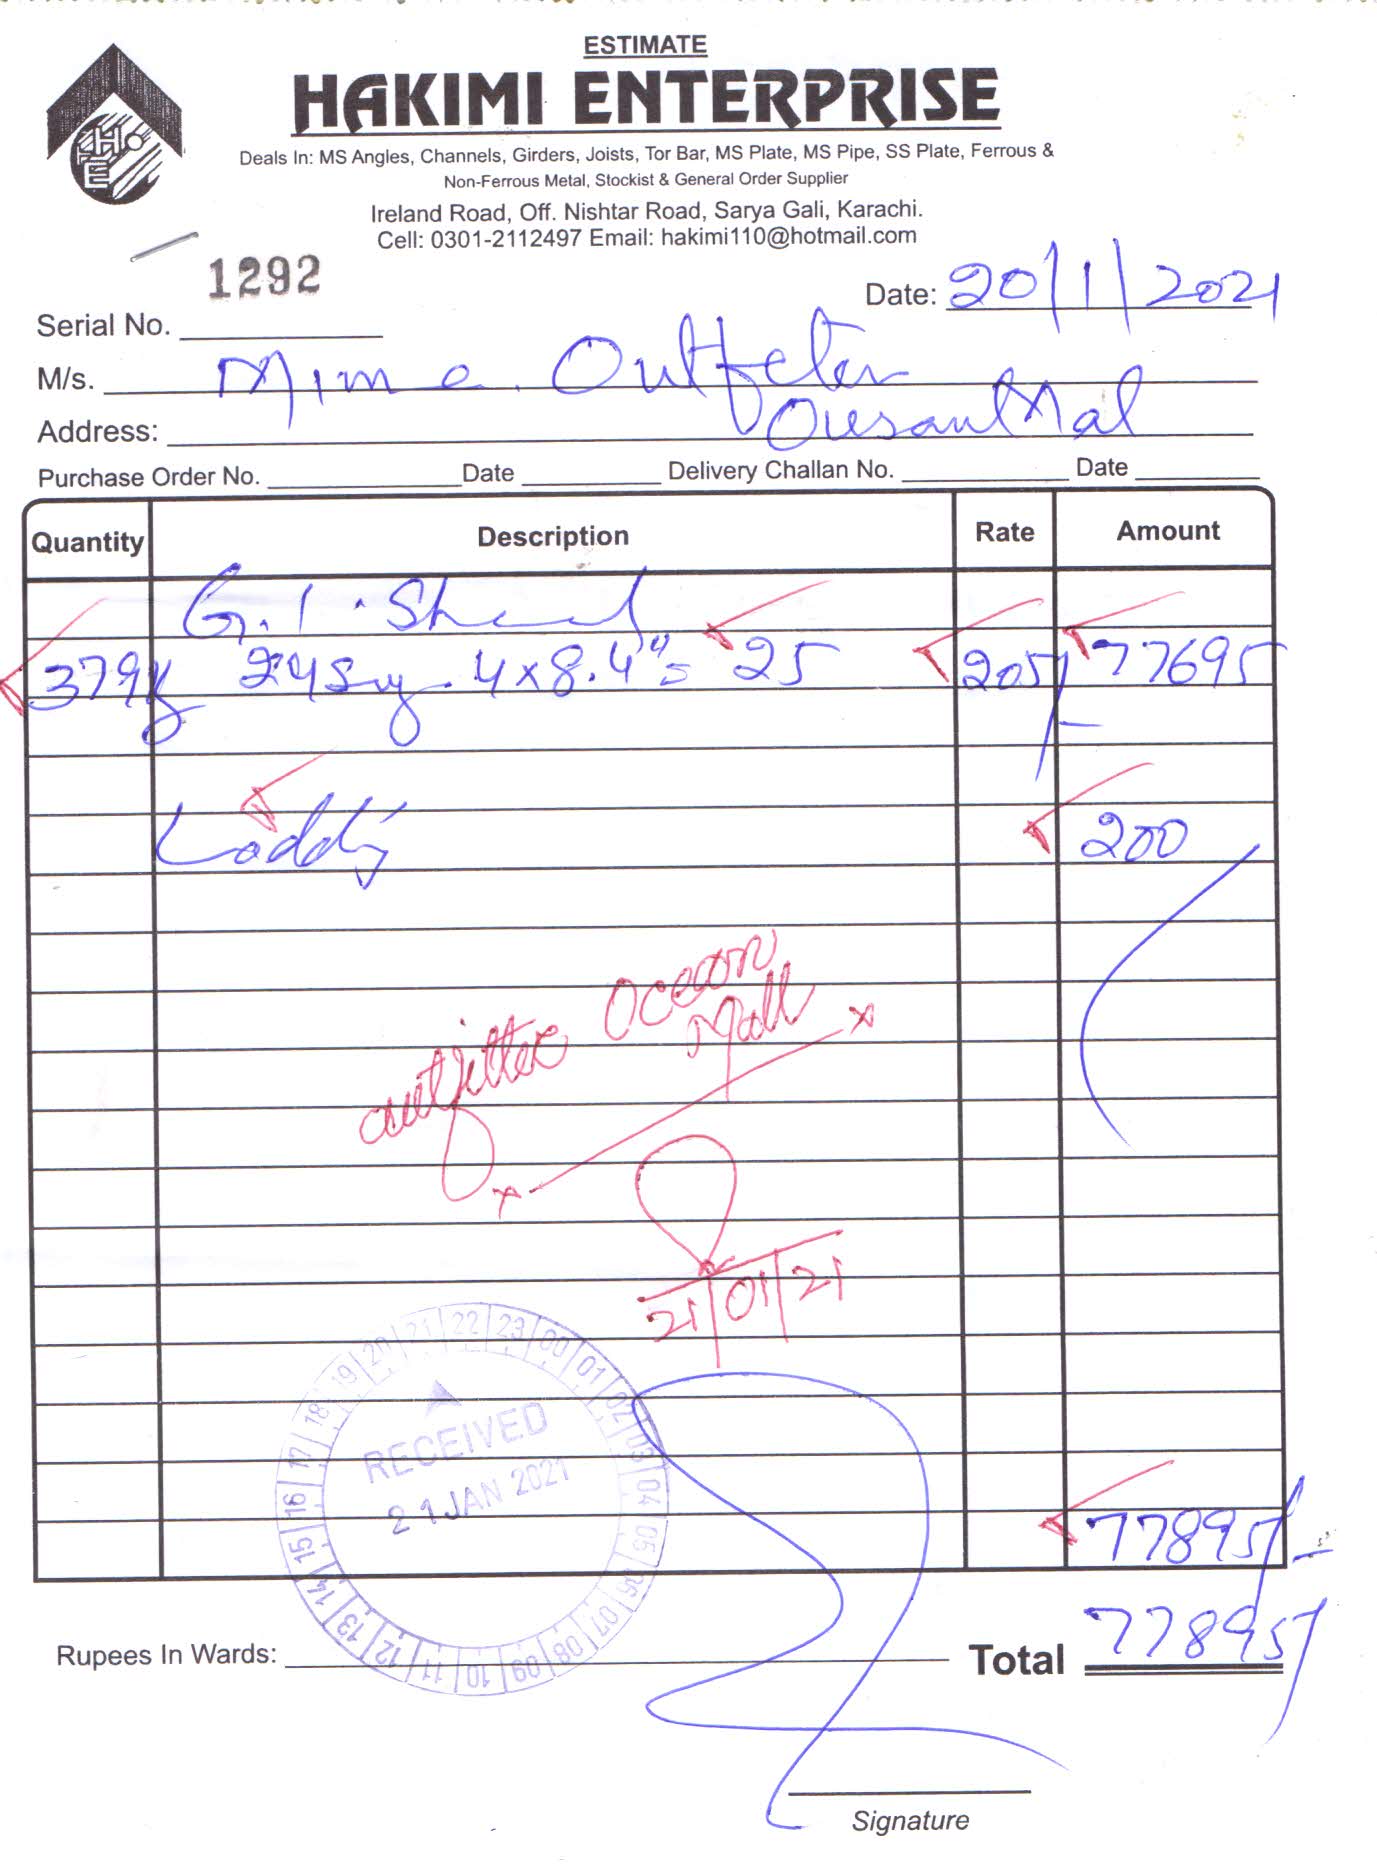 ESTIMATE
HAKIMI ENTERPRISE
Deals In: MS Angles, Channels, Girders, Joists, Tor Bar, MS Plate, MS Pipe, SS Plate, Ferrous &
Non-Ferrous Metal, Stockist & General Order Supplier
Ireland Road, Off. Nishtar Road, Sarya Gali, Karachi.
Cell: 0301-2112497 Email: hakimi110@hotmail.com
HE
Serial No. 1292
Date: 20/1/2021
M/s.
Address:
Purchase Order No. Date Delivery Challan No. Date
Quantity Description Rate Amount
G.I. Sheet
379 24 4x8.4" = 25 205/- 77695
200
outfitter Ocean
Mall
21/01/21
21 22 23 00 01 02 03 04 05 06 07 08 09 10 11 12 13 14 15 16 17 18 19 20
RECEIVED
21 JAN 2021
77895/-
Rupees In Wards: Total 77895/
Signature